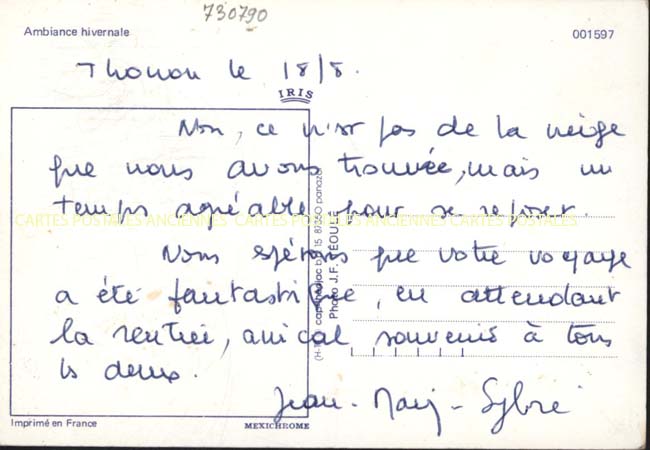 730790
Ambiance hivernale
001597
Thonon le 18/8.
IRIS
Non, ce n'est pas de la neige
que nous avons trouvée, mais un
temps agréable pour se reposer.
CARTES POSTALES ANCIENNES CARTES POSTALES ANCIENNES CARTES POSTALES ANCIENNES
Nous espérons que votre voyage
a été fantastique, en attendant
la rentrée, amical souvenir à tous
les deux.
Jean-Marie - Sylvie
Photo J.F.
Imprimé en France
MEXICHROME